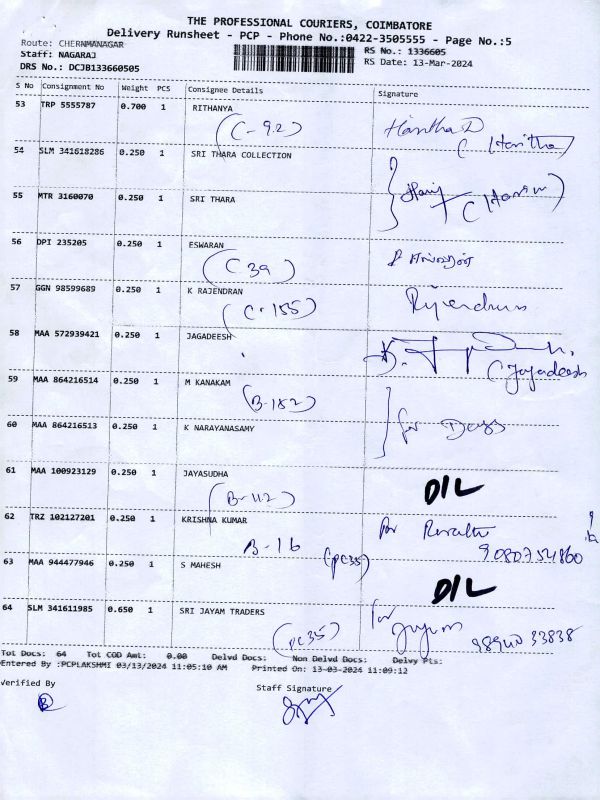 THE PROFESSIONAL COURIERS, COIMBATORE
Delivery Runsheet - PCP - Phone No.:0422-3505555 - Page No.:5
Route: CHERNMANAGAR
RS No.: 1336605
Staff: NAGARAJ
RS Date: 13-Mar-2024
DRS No.: DCJB133660505
S No Consignment No Weight PCS Consignee Details Signature
53 TRP 5555787 0.700 1 RITHANYA
(C-92) Haritha D
(Haritha)
54 SLM 341618286 0.250 1 SRI THARA COLLECTION
55 MTR 3160070 0.250 1 SRI THARA
56 DPI 235205 0.250 1 ESWARAN
(C 39)
57 GGN 98599689 0.250 1 K RAJENDRAN
(C-155) Rajendran
58 MAA 572939421 0.250 1 JAGADEESH
(Jagadeesh
59 MAA 864216514 0.250 1 M KANAKAM
(B-182)
60 MAA 864216513 0.250 1 K NARAYANASAMY
for
61 MAA 100923129 0.250 1 JAYASUDHA
(B-112) D/L
62 TRZ 102127201 0.250 1 KRISHNA KUMAR
B-16 for 9080754860
63 MAA 944477946 0.250 1 S MAHESH
(PC35) D/L
64 SLM 341611985 0.650 1 SRI JAYAM TRADERS
(PC35) for 98940 33838
Tot Docs: 64 Tot COD Amt: 0.00 Delvd Docs: Non Delvd Docs: Delvy Pts:
Entered By :PCPLAKSHMI 03/13/2024 11:05:10 AM Printed On: 13-03-2024 11:09:12
Verified By Staff Signature
B